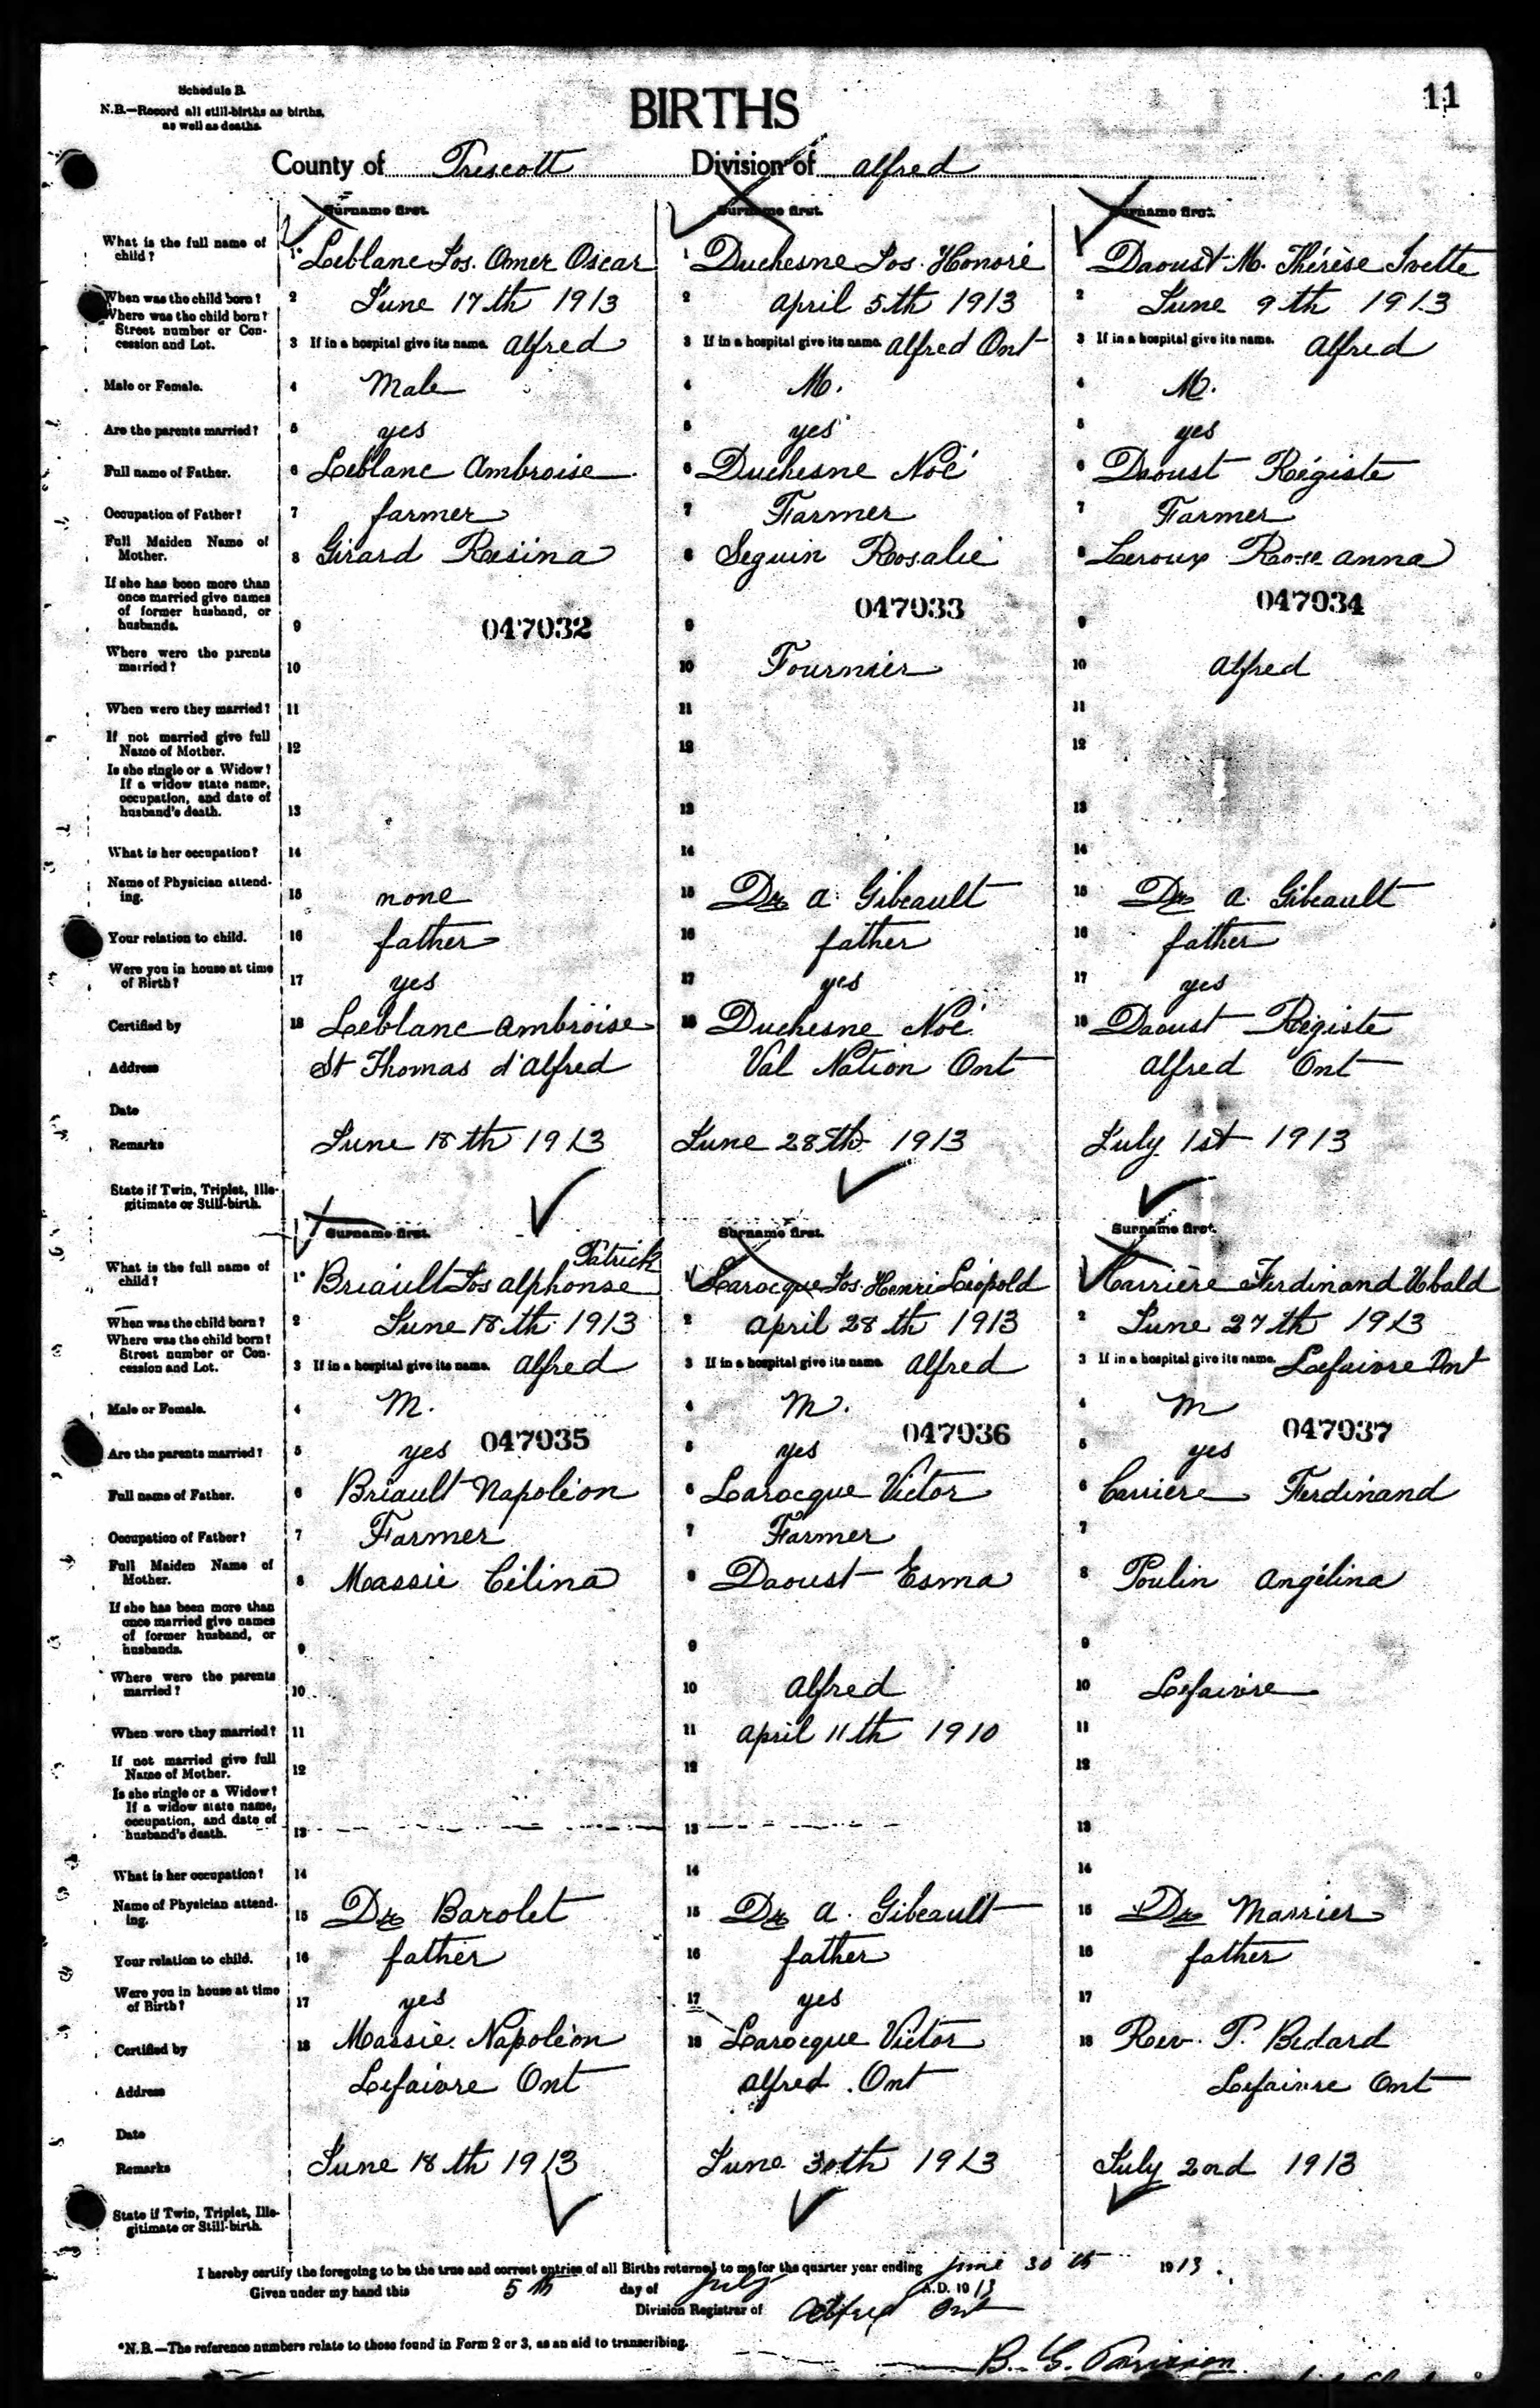 Schedule B.
N.B.—Record all still-births as births,
as well as deaths.
BIRTHS
11
County of Prescott Division of Alfred
Surname first. Surname first. Surname first.
What is the full name of child? 1* Leblanc Jos. Omer Oscar 1 Duchesne Jos. Honoré Daoust M. Thérèse Ivette
When was the child born? 2 June 17th 1913 2 April 5th 1913 2 June 9th 1913
Where was the child born? Street number or Concession and Lot. 3 If in a hospital give its name. Alfred 3 If in a hospital give its name. Alfred Ont 3 If in a hospital give its name. Alfred
Male or Female. 4 Male 4 M. 4 M.
Are the parents married? 5 yes 5 yes 5 yes
Full name of Father. 6 Leblanc Ambroise 6 Duchesne Noé 6 Daoust Régiste
Occupation of Father? 7 farmer 7 Farmer 7 Farmer
Full Maiden Name of Mother. 8 Girard Rosina 8 Seguin Rosalie 8 Leroux Rose anna
If she has been more than once married give names of former husband, or husbands. 9 047032 9 047033 9 047034
Where were the parents married? 10 10 Fournier 10 Alfred
When were they married? 11 11 11
If not married give full Name of Mother. 12 12 12
Is she single or a Widow? If a widow state name, occupation, and date of husband's death. 13 13 13
What is her occupation? 14 14 14
Name of Physician attending. 15 none 15 Dr A. Gibeault 15 Dr A. Gibeault
Your relation to child. 16 father 16 father 16 father
Were you in house at time of Birth? 17 yes 17 yes 17 yes
Certified by 18 Leblanc Ambroise 18 Duchesne Noé 18 Daoust Régiste
Address St Thomas d'Alfred Val Nation Ont Alfred Ont
Date
Remarks June 18th 1913 June 28th 1913 July 1st 1913
State if Twin, Triplet, Illegitimate or Still-birth.
Surname first. Surname first. Surname first.
Patrick
What is the full name of child? 1* Briault Jos Alphonse Larocque Jos. Henri Léopold Carrière Ferdinand Ubald
When was the child born? 2 June 18th 1913 2 April 28th 1913 2 June 27th 1913
Where was the child born? Street number or Concession and Lot. 3 If in a hospital give its name. Alfred 3 If in a hospital give its name. Alfred 3 If in a hospital give its name. Lefaivre Ont
Male or Female. 4 M. 4 M. 4 M
Are the parents married? 5 yes 047035 5 yes 047036 5 yes 047037
Full name of Father. 6 Briault Napoléon 6 Larocque Victor 6 Carriere Ferdinand
Occupation of Father? 7 Farmer 7 Farmer 7
Full Maiden Name of Mother. 8 Massie Célina 8 Daoust Esma 8 Poulin Angélina
If she has been more than once married give names of former husband, or husbands. 9 9 9
Where were the parents married? 10 10 Alfred 10 Lefaivre
When were they married? 11 11 April 11th 1910 11
If not married give full Name of Mother. 12 12 12
Is she single or a Widow? If a widow state name, occupation, and date of husband's death. 13 13 13
What is her occupation? 14 14 14
Name of Physician attending. 15 Dr Barolet 15 Dr A. Gibeault 15 Dr Marrier
Your relation to child. 16 father 16 father 16 father
Were you in house at time of Birth? 17 yes 17 yes 17
Certified by 18 Massie Napoléon 18 Larocque Victor 18 Rev. P. Bedard
Address Lefaivre Ont Alfred . Ont Lefaivre Ont
Date
Remarks June 18th 1913 June 30th 1913 July 2nd 1913
State if Twin, Triplet, Illegitimate or Still-birth.
I hereby certify the foregoing to be the true and correct entries of all Births returned to me for the quarter year ending June 30th 1913.
Given under my hand this 5th day of July A.D. 1913
Division Registrar of Alfred Ont
*N.B.—The reference numbers relate to those found in Form 2 or 3, as an aid to transcribing.
B. G. Parisien